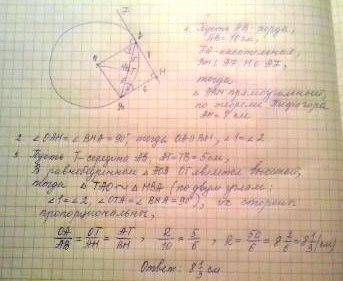 1. Пусть AB - хорда,
AB = 10 см,
касательная,
тогда
прямоугольный,
по теореме Пифагора
AH = 8 см
2. ∠OAH = ∠BHA = 90°, тогда OA || BH, ∠1 = ∠2
3. Пусть T - середина AB, AT = TB = 5 см,
В равнобедренном △AOB OT является высотой,
тогда △TAO ~ △HBA (по двум углам:
∠1 = ∠2, ∠OTA = ∠BHA = 90°), их стороны
пропорциональны,
OA/AB = OT/AH = AT/BH, R/10 = 5/6, R = 50/6 = 8 2/6 = 8 1/3 (см)
Ответ: 8 1/3 см